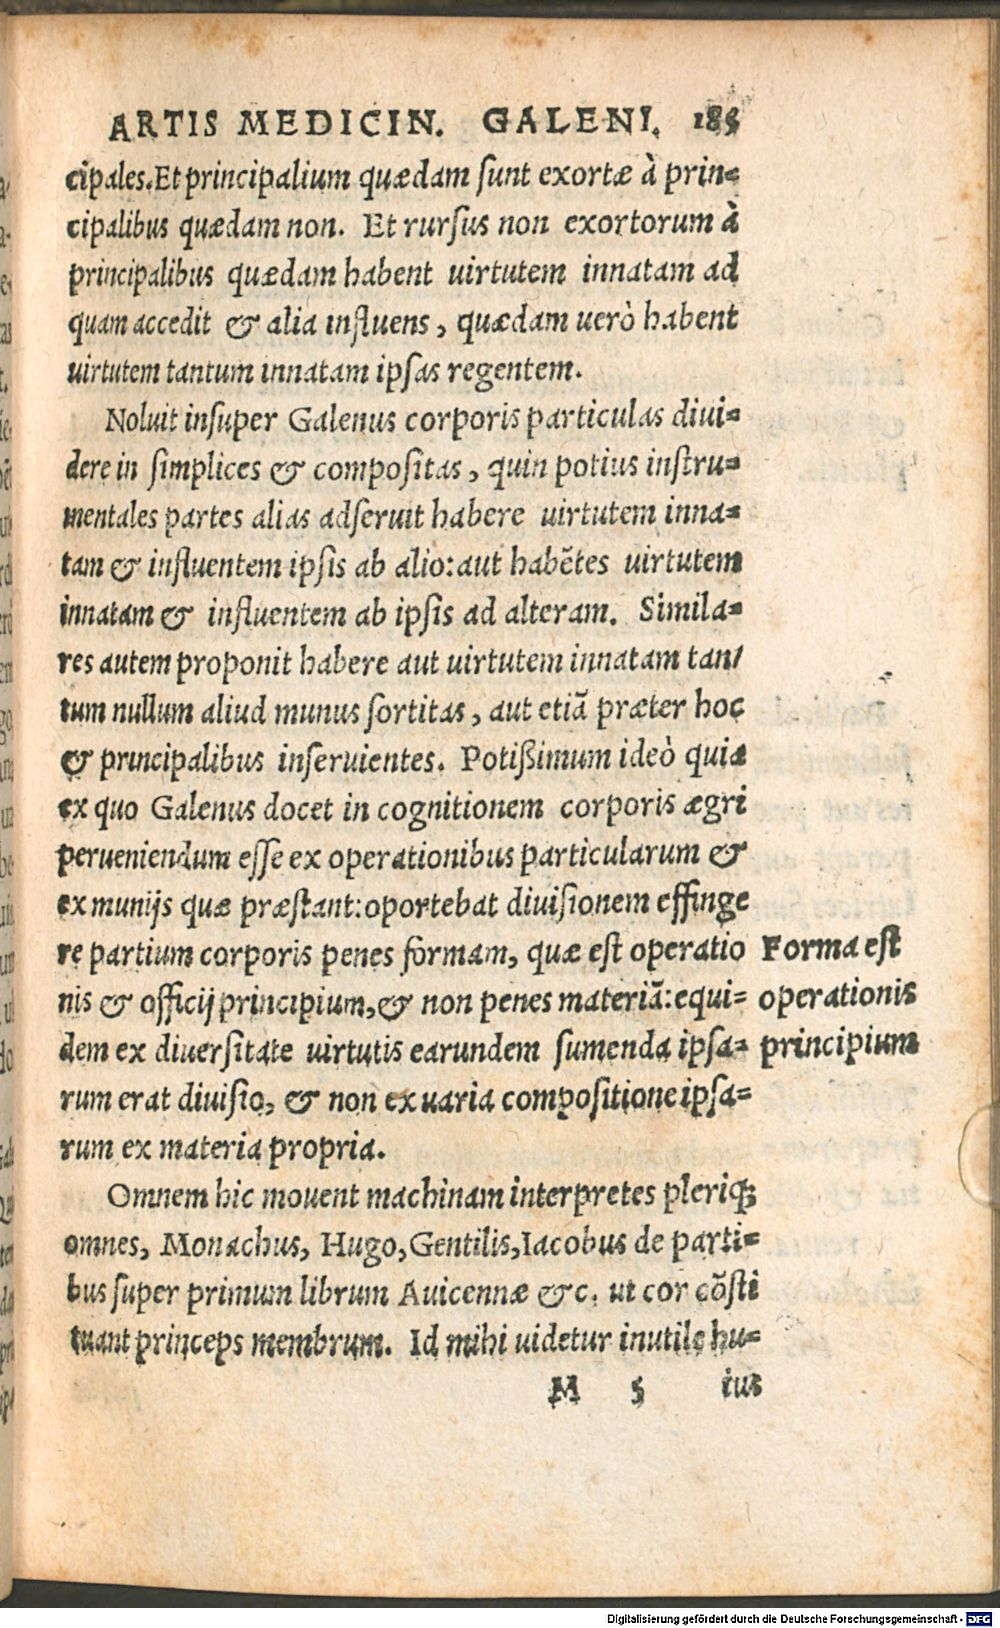 ARTIS MEDICIN. GALENI. 185
cipales. Et principalium quædam sunt exortæ à prin=
cipalibus quædam non. Et rursus non exortorum à
principalibus quædam habent uirtutem innatam ad
quam accedit & alia influens, quædam uerò habent
uirtutem tantum innatam ipsas regentem.
Noluit insuper Galenus corporis particulas diui=
dere in simplices & compositas, quin potius instru=
mentales partes alias adseruit habere uirtutem inna=
tam & influentem ipsis ab alio: aut habētes uirtutem
innatam & influentem ab ipsis ad alteram. Simila=
res autem proponit habere aut uirtutem innatam tan/
tum nullum aliud munus sortitas, aut etiā præter hoc
& principalibus inseruientes. Potißimum ideò quia
ex quo Galenus docet in cognitionem corporis ægri
perueniendum esse ex operationibus particularum &
ex munijs quæ præstant: oportebat diuisionem effinge
re partium corporis penes formam, quæ est operatio
nis & officij principium, & non penes materiā: equi=
dem ex diuersitate uirtutis earundem sumenda ipsa=
rum erat diuisio, & non ex uaria compositione ipsa=
rum ex materia propria.
Forma est
operationis
principium
Omnem hic mouent machinam interpretes pleriq;
omnes, Monachus, Hugo, Gentilis, Iacobus de parti=
bus super primum librum Auicennæ &c. ut cor cōsti
tuant princeps membrum. Id mihi uidetur inutile hu=
M 5 ius
Digitalisierung gefördert durch die Deutsche Forschungsgemeinschaft - DFG